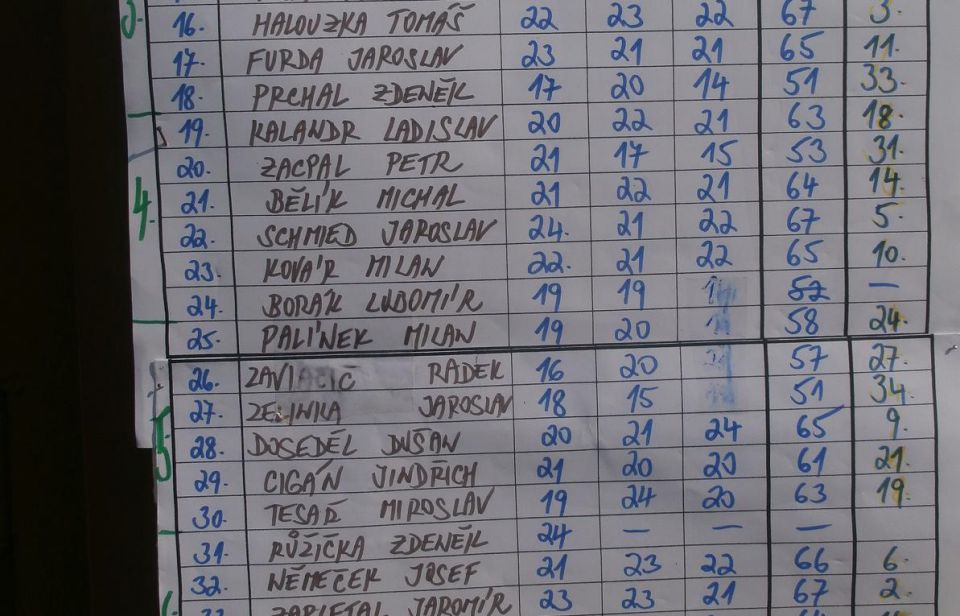 3.
16. HALOUZKA TOMÁŠ 22 23 22 67 3.
17. FURDA JAROSLAV 23 21 21 65 11.
18. PRCHAL ZDENĚK 17 20 14 51 33.
19. KALANDR LADISLAV 20 22 21 63 18.
20. ZACPAL PETR 21 17 15 53 31.
4. 21. BĚLÍK MICHAL 21 22 21 64 14.
22. SCHMIED JAROSLAV 24. 21 22 67 5.
23. KOVÁŘ MILAN 22. 21 22 65 10.
24. BORÁK LUBOMÍR 19 19 —
25. PALÍNEK MILAN 19 20 58 24.
26. RADEK 16 20 57 27.
27. ZELINKA JAROSLAV 18 15 51 34.
5. 28. DOSEDĚL DUŠAN 20 21 24 65 9.
29. CIGÁN JINDŘICH 21 20 20 61 21.
30. TESAŘ MIROSLAV 19 24 20 63 19.
31. RŮŽIČKA ZDENĚK 24 — — —
32. NĚMEČEK JOSEF 21 23 22 66 6.
33. ZAPLETAL JAROMÍR 23 23 21 67 2.